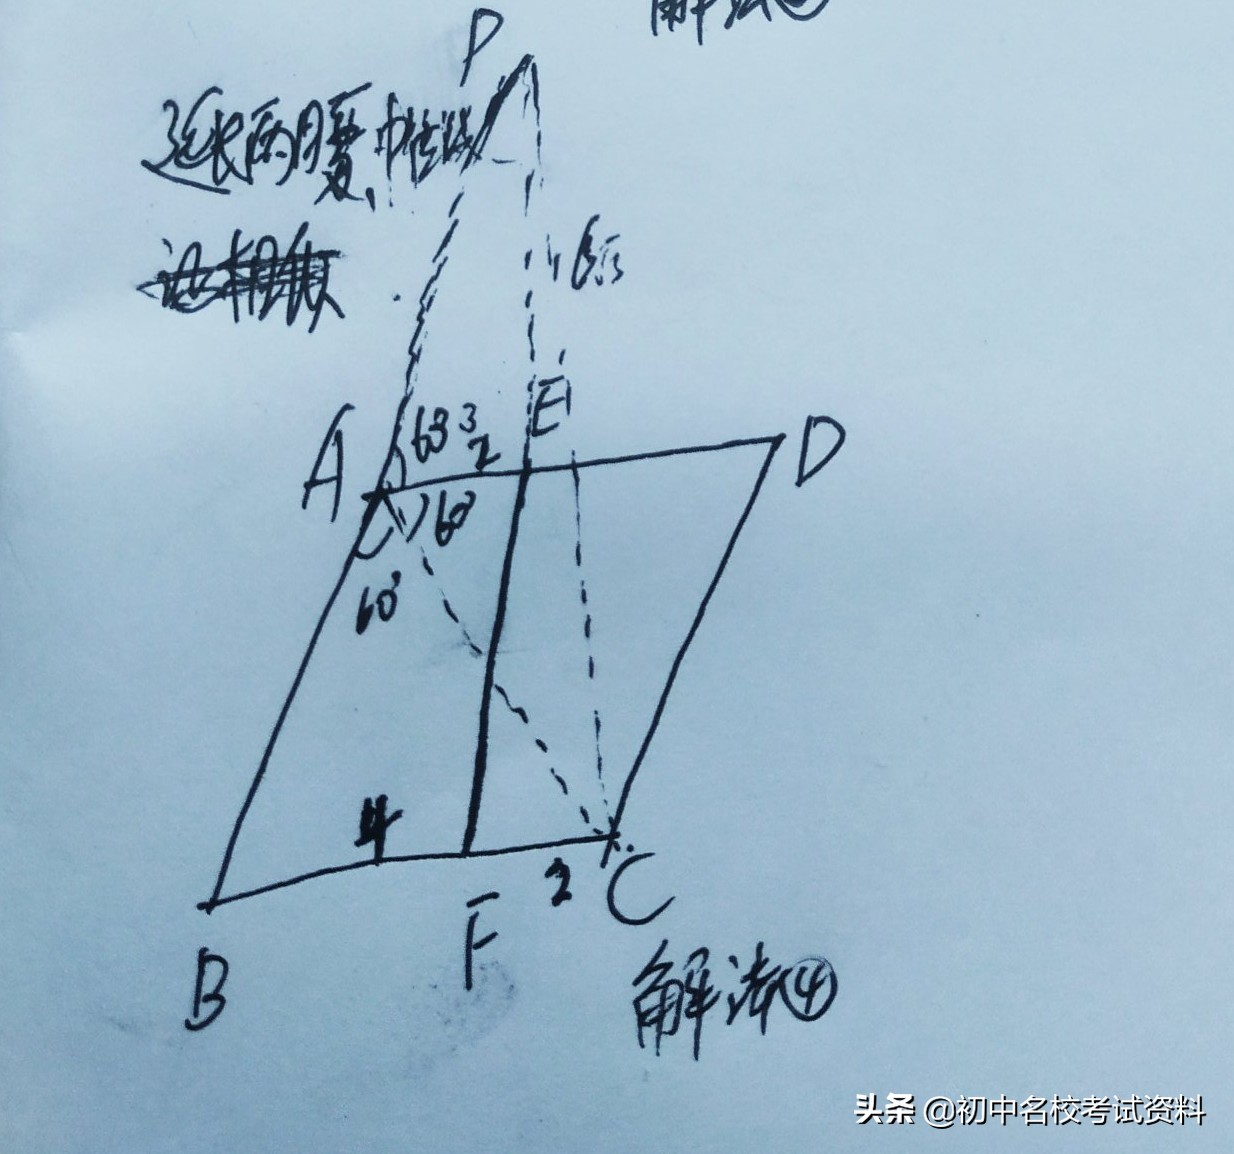 解法
P
延长两腰、
E
A
60°
3
2
D
60°
60°
4
2
B
F
C
解法④
头条 @初中名校考试资料